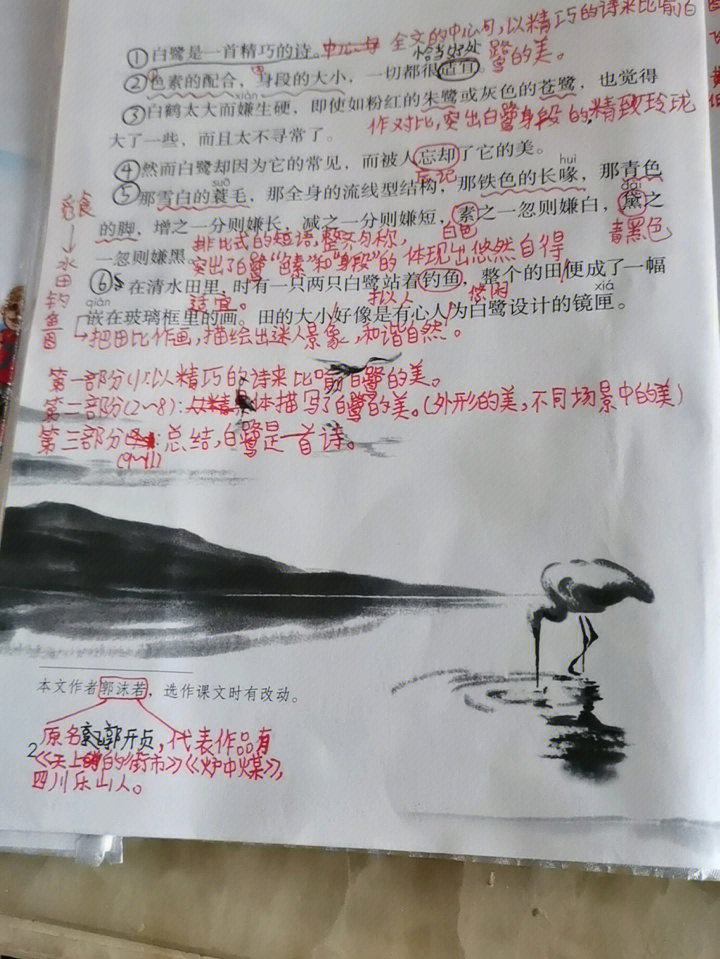 全文的中心句,以精巧的诗来比喻白
①白鹭是一首精巧的诗。
鹭的美。
恰当好处
②色素的配合,身段的大小,一切都很适宜。
xián
③白鹤太大而嫌生硬,即使如粉红的朱鹭或灰色的苍鹭,也觉得
大了一些,而且太不寻常了。
作对比,突出白鹭身段的精致玲珑
④然而白鹭却因为它的常见,而被人忘却了它的美。
忘记
suō
huì
dài
⑤那雪白的蓑毛,那全身的流线型结构,那铁色的长喙,那青色
的脚,增之一分则嫌长,减之一分则嫌短,素之一忽则嫌白,黛之
白色
青黑色
一忽则嫌黑。
排比式的短语,整齐匀称,
突出了白鹭“色素”和“身段”的
适宜。
体现出悠然自得
⑥在清水田里,时有一只两只白鹭站着钓鱼,整个的田便成了一幅
拟人
悠闲
qiàn
xiá
嵌在玻璃框里的画。田的大小好像是有心人为白鹭设计的镜匣。
水田钓鱼图
把田比作画,描绘出迷人景象,和谐自然。
第一部分(1):以精巧的诗来比喻白鹭的美。
第二部分(2~8):具体描写了白鹭的美。(外形的美,不同场景中的美)
第三部分:总结,白鹭是一首诗。
(9~11)
本文作者郭沫若,选作课文时有改动。
原名郭开贞,代表作品有
2
《天上的街市》《炉中煤》,
四川乐山人。